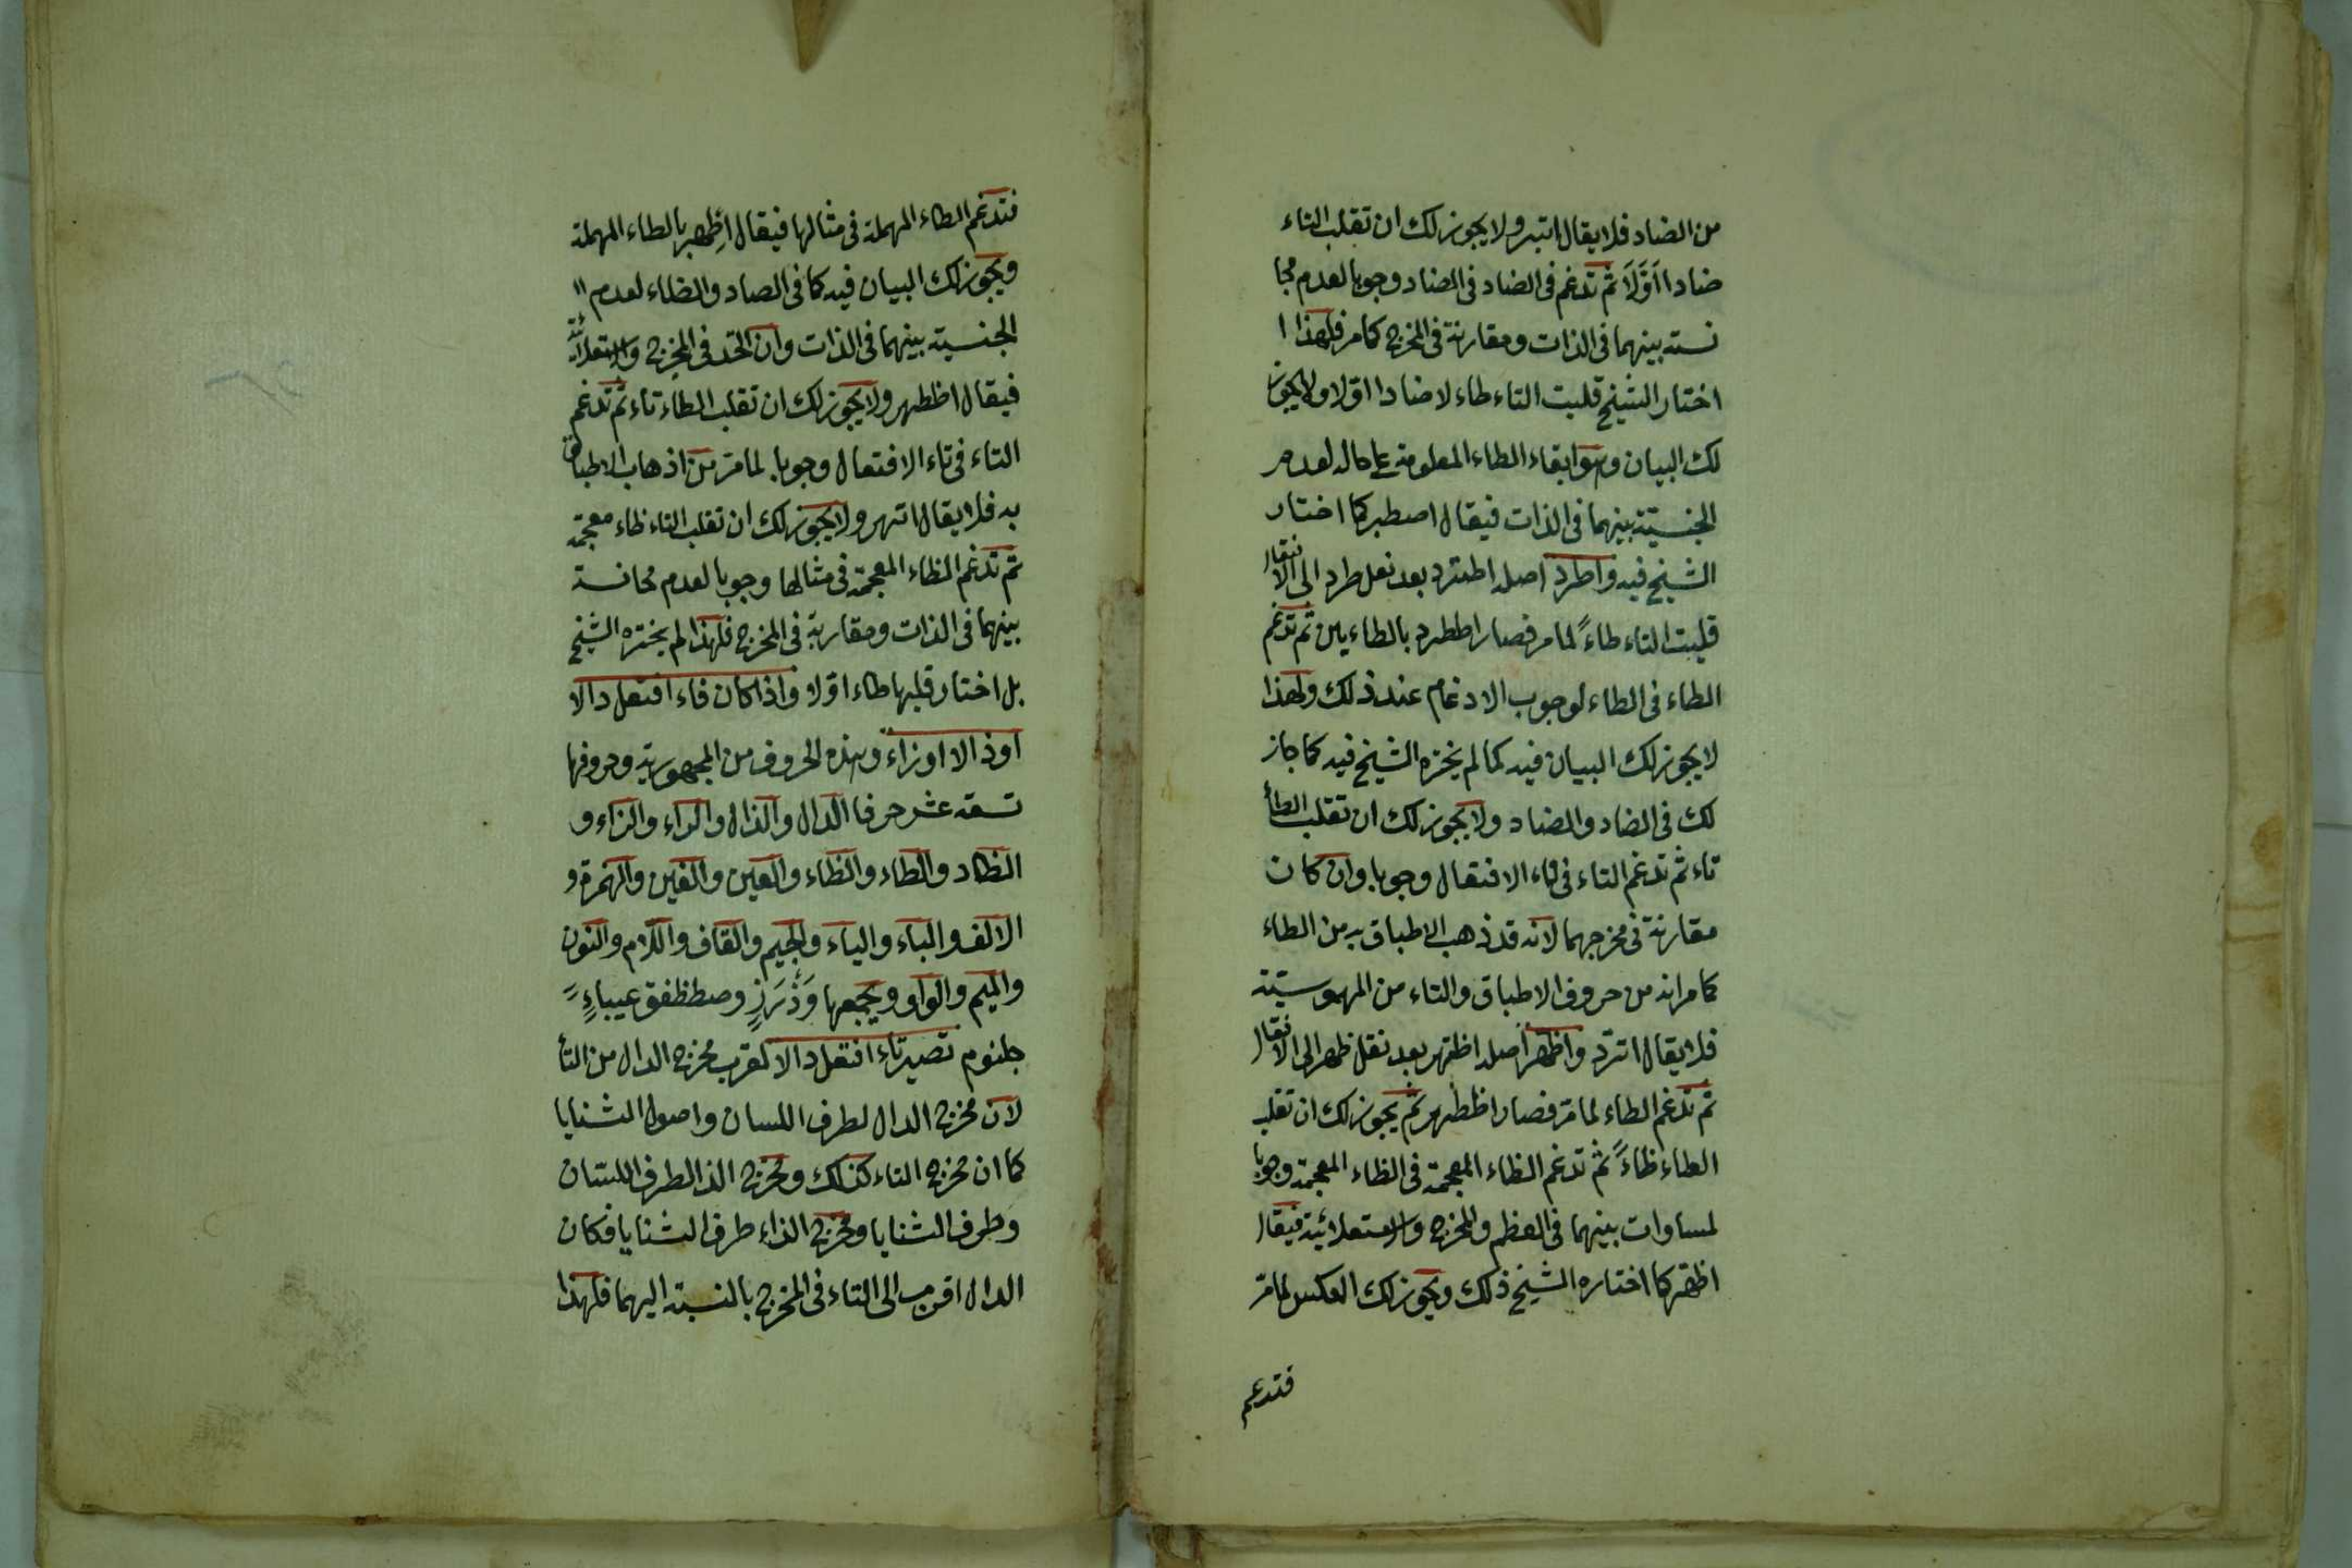 من الضاد فلا يقال اتبر ولا يجوز لك ان تقلب التاء
ضادا اَوَّلَاً ثم تدغم فى الضاد فى الضاد وجوبا لعدم مجا
نسته بينهما فى الذات ومقاربة فى المخرج كما مر فلهذا ا
اختار الشيخ قلبت التاء طاء لا ضادا اولا ولا يجوز
لك البيان وهو ابقاء الطاء المعلومة على حاله لعدم
الجنسيّة بينهما فى الذات فيقال اصطبر كما اختار
الشيخ فيه واطرد اصله اطترد بعد نقل طرد الى الافتعال
قلبت التاء طاءً لما مر فصار اططرد بالطاءين ثم تدغم
الطاء فى الطاء لوجوب الادغام عند ذلك ولهذا
لا يجوز لك البيان فيه كما لم يخزه الشيخ فيه كما جاز
لك فى الضاد والضاد ولا يجوز لك ان تقلب الطأ
تاء ثم تدغم التاء فى تاء الافتعال وجوبا وان كان
مقاربة فى مخرجهما لانه قد ذهب الاطباق به من الطاء
كما مر انه من حروف الاطباق والتاء من المهموسيّة
فلا يقال اترد واظهر اصله اظتهر بعد نقل ظهر الى الافتعال
ثم تدغم الطاء لما مرّ فصار اظطهر ثم يجوز لك ان تقلب
الطاء ظاءً ثم تدغم الظاء المعجمة فى الظاء المعجمة وجوبا
لمساوات بينهما فى العظم والمخرج والاستعلائية فيقال
اظهر كما اختاره الشيخ ذلك ويجوز لك العكس لما مرّ
فتدغم
فتدغم الطاء المهملة فى مثالها فيقال اطّهر بالطاء المهملة
ويجوز لك البيان فيه كما فى الصاد والضاء لعدم
الجنسية بينهما فى الذات وان اتحد فى المخرج والاستعلائية
فيقال اظطهر ولا يجوز لك ان تقلب الطاء تاء ثم تدغم
التاء فى تاء الافتعال وجوبا لما مر من اذهاب الاطباق
به فلا يقال اتهر ولا يجوز لك ان تقلب التاء ظاء معجمة
ثم تدغم الظاء المعجمة فى مثالها وجوبا لعدم مجانسة
بينهما فى الذات ومقاربة فى المخرج فلهذا لم يختره الشيخ
بل اختار قلبها طاء اولا واذا كان فاء افتعل دالا
او ذالا او زاء وهذه الحروف من المجهورية وحروفها
تسعة عشر حرفا الدال والذال والراء والزاء و
الظاد والطاء والظاء والعين والغين والهمزة و
الالف والباء والياء والجيم والقاف واللام والنون
والميم والواو ويجمعها وَذْرَزٍ وصطظفق عيباءٍ
جلنوم تصير تاء افتعل دالا لقرب مخرج الدال من التأ
لان مخرج الدال لطرف اللسان واصول الثنايا
كما ان مخرج التاء كذلك ومخرج الذال طرف اللسان
وطرف الثنايا ومخرج الزاء طرف الثنايا فكان
الدال اقرب الى التاء فى المخرج بالنسبة اليهما فلهذا